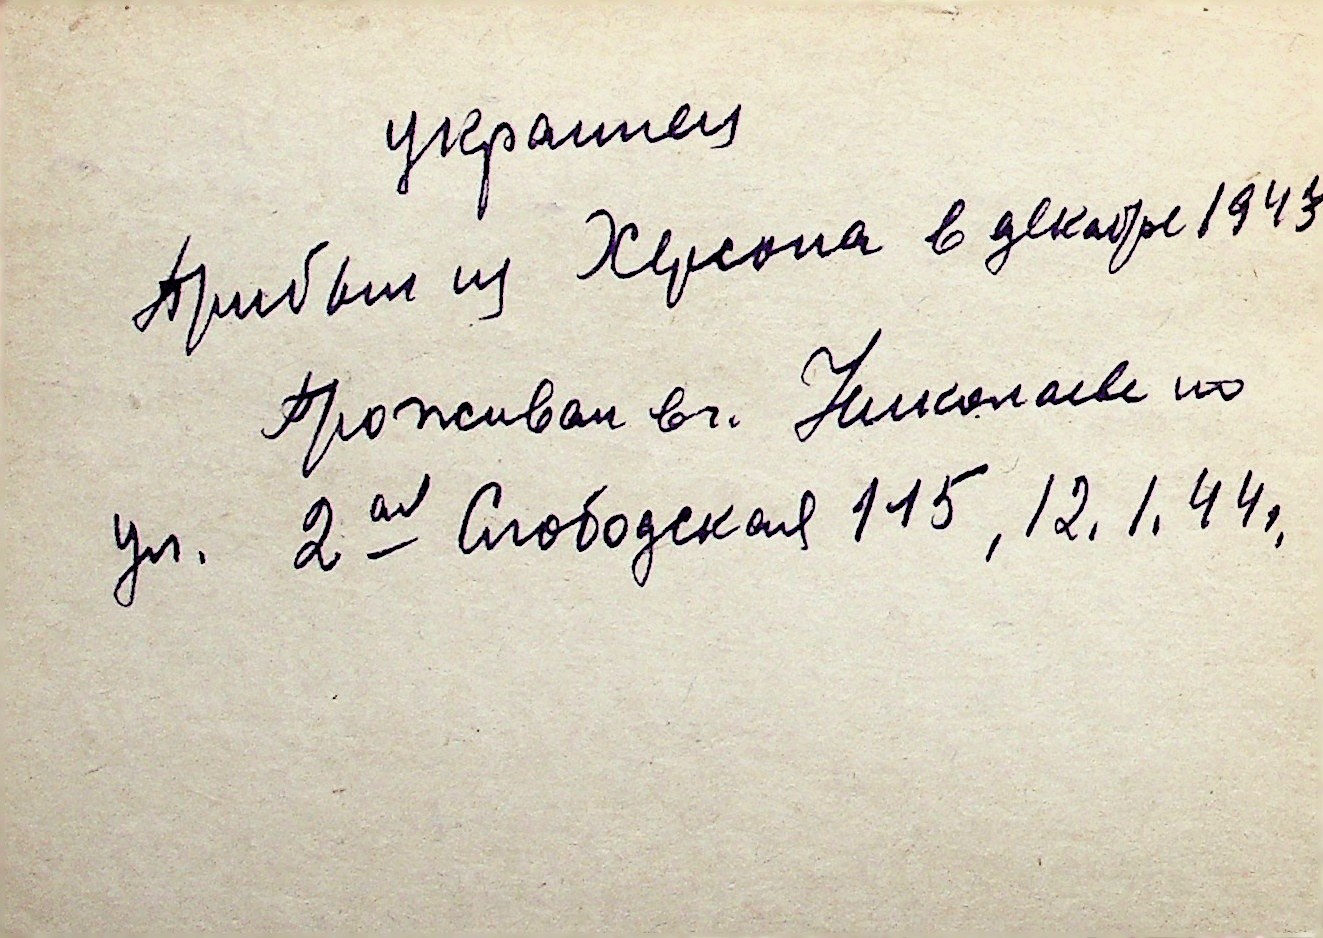 украинец
Прибыл из Херсона в декабре 1943
Проживал в г. Николаеве по
ул. 2ая Слободская 115, 12.1.44г.